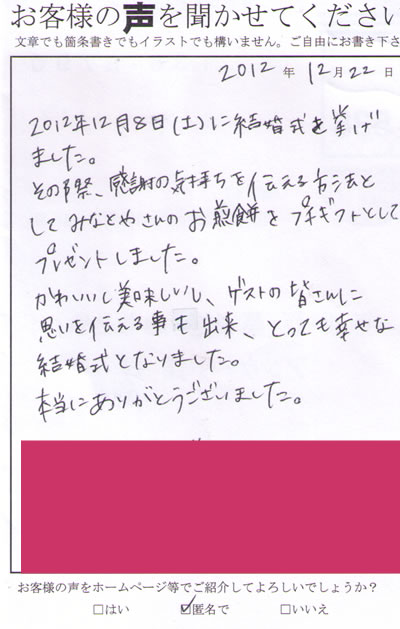 お客様の声を聞かせてください
文章でも箇条書きでもイラストでも構いません。ご自由にお書き下さ
2012年 12月22日
2012年12月8日(土)に結婚式を挙げ
ました。
その際、感謝の気持ちを伝える方法と
して みなとやさんのお煎餅を プチギフトとして
プレゼントしました。
かわいいし美味しいし、ゲストの皆さんに
思いを伝える事も出来、とっても幸せな
結婚式となりました。
本当にありがとうございました。
お客様の声をホームページ等でご紹介してよろしいでしょうか?
□はい ☑匿名で □いいえ